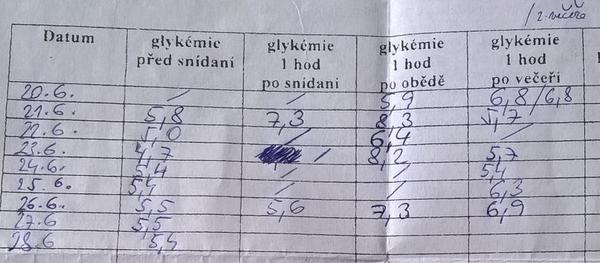 /2. večeře
Datum glykémie glykémie glykémie glykémie
před snídaní 1 hod 1 hod 1 hod
po snídani po obědě po večeři
20.6. / / 5,9 6,8/6,8
21.6. 5,8 7,3 8,3 5,7
22.6. 5,0 / 6,4 /
23.6. 4,7 / 8,2 5,7
24.6. 5,4 / / 5,4
25.6. 5,4 / / 6,3
26.6. 5,5 5,6 7,3 6,9
27.6 5,5
28.6 5,4